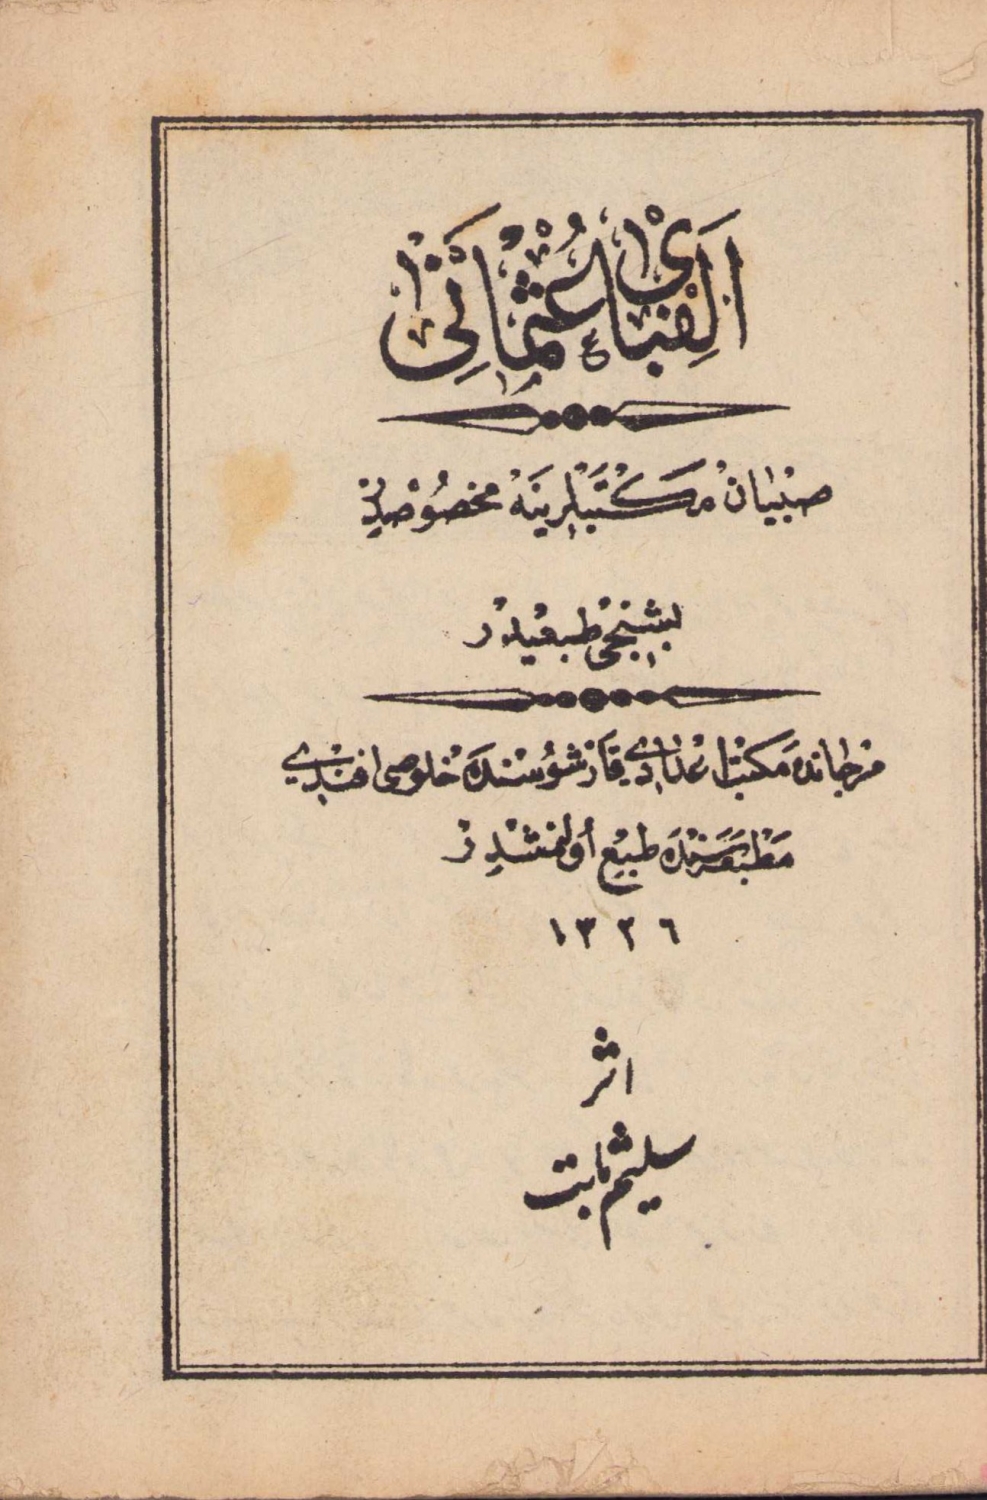 الفبای عثمانی
صبیان مکتبلرینه مخصوصدر
بشنجی طبعیدر
مرجانده مکتب اعدادی قارشوسنده خلوصی افندی
مطبعه‌سنده طبع اولنمشدر
١٣٢٦
اثر
سلیم ثابت